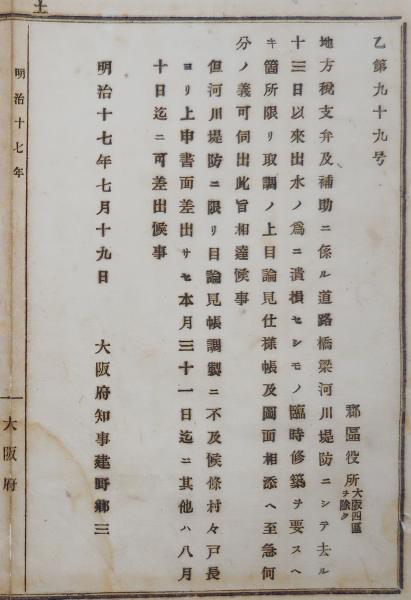 乙第九十九号
郡區役所大阪四區ヲ除ク
地方税支弁及補助ニ係ル道路橋梁河川堤防ニシテ去ル
十三日以來出水ノ爲ニ潰損セシモノ臨時修築ヲ要スヘ
キ箇所限リ取調ノ上目論見仕様帳及圖面相添ヘ至急何
分ノ義可伺出此旨相達候事
但河川堤防ニ限リ目論見帳調製ニ不及候條村々戸長
ヨリ上申書面差出サセ本月三十一日迄ニ其他ハ八月
十日迄ニ可差出候事
明治十七年七月十九日
大阪府知事建野郷三
土
明治十七年
大阪府